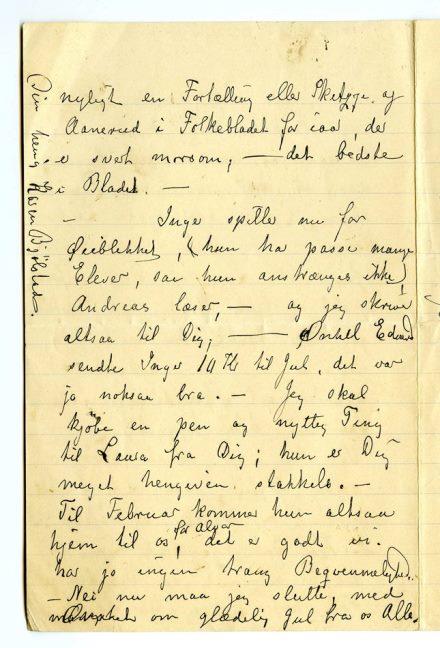 nyligt en Fortælling eller Skizze af
Aanerud i Folkebladet for iaar, der
er svært morsom, — det bedste
i Bladet. —
— Inger spiller nu for
Øieblikket, (hun har passe mange
Elever, saa hun anstrænges ikke)
Andreas læser, — og jeg skriver
altsaa til Dig, — Onkel Edvard
sendte Inger 10 Kr til Jul, det var
jo noksaa bra. — Jeg skal
kjøbe en pen og nyttig Ting
til Laura fra Dig; hun er Dig
meget hengiven stakkels. —
Til Februar kommer hun altsaa
hjem til os for alvor, det er godt vi
har jo ingen trang Beqvemmelighed.
— Nei nu maa jeg slutte, med
Ønsket om glædelig Jul fra os Alle.
Din heng Karen Bjølstad.